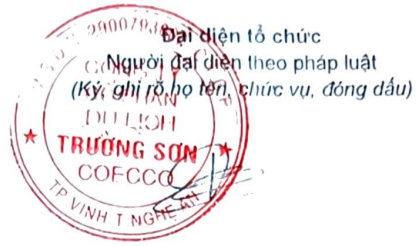 Đại diện tổ chức
Người đại diện theo pháp luật
(Ký, ghi rõ họ tên, chức vụ, đóng dấu)
CÔNG TY
CỔ PHẦN
DU LỊCH
TRƯỜNG SƠN
COECCO
TP VINH T NGHỆ AN